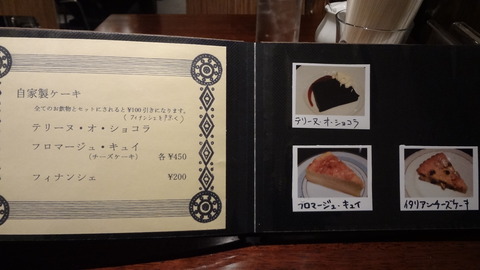 自家製ケーキ
全てのお飲物とセットにされると¥100引きになります。
(フィナンシェを除く)
テリーヌ・オ・ショコラ
フロマージュ・キュイ
(チーズケーキ) 各¥450
フィナンシェ ¥200
テリーヌ・オ・ショコラ
フロマージュ・キュイ
イタリアンチーズケーキ